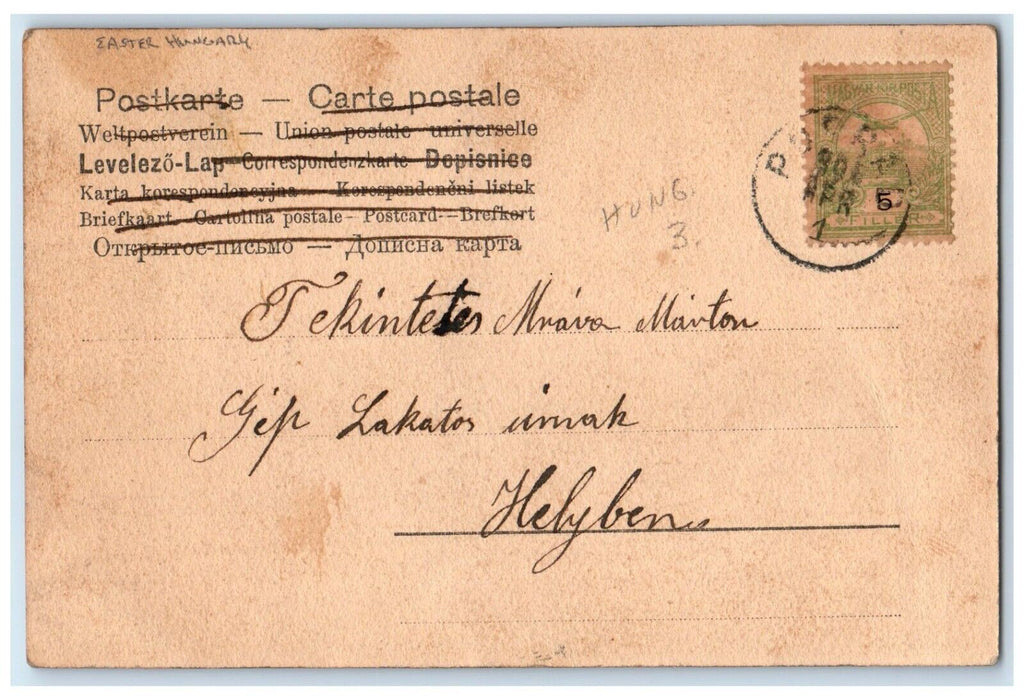 EASTER HUNGARY
Postkarte — Carte postale
Weltpostverein — Union postale universelle
Levelező-Lap — Correspondenzkarte — Dopisnice
Karta korespondencyjna — Korespondenčni listek
Briefkaart — Cartolina postale — Postcard — Brefkort
Открытое-письмо — Дописна карта
MAGYAR KIR. POSTA
5
FILLER
APR
1
HUNG.
3.
Tekintetes Mráva Márton
Gép Lakatos úrnak
Helyben